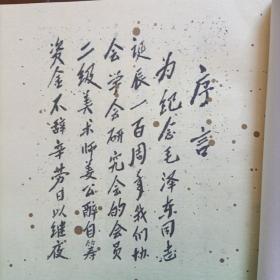 序言
为纪念毛泽东同志
诞辰一百周年我们协
会学会研究会的会员
二级美术师姜公醉自筹
资金不辞辛劳日以继夜